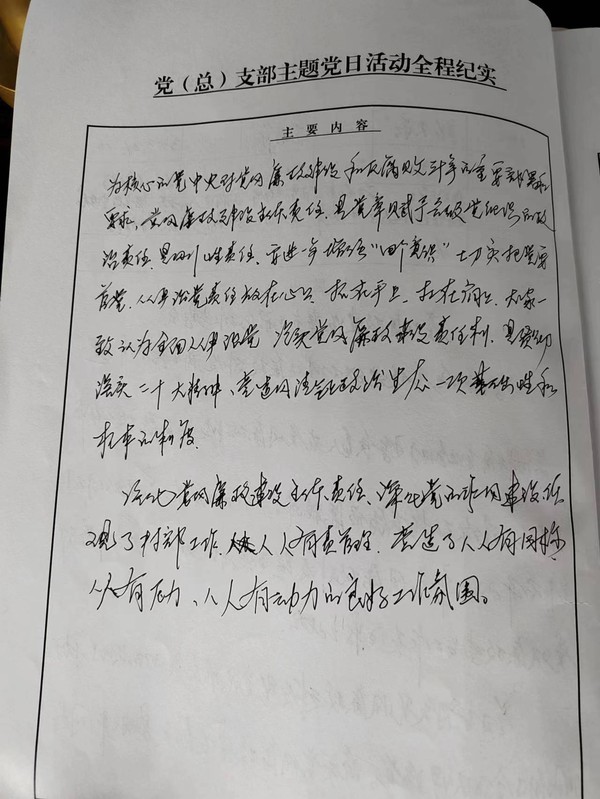 党（总）支部主题党日活动全程纪实
主要内容
为核心的党中央对党风廉政建设和反腐败斗争的重要部署和
要求，党风廉政建设主体责任，是党章赋予各级党组织的政
治责任，是性责任，要进一步增强“四个意识”切实把党要
管党、从严治党责任放在心上、抓在手上、扛在肩上，大家一
致认为全面从严治党，落实党风廉政建设责任制，是贯彻
落实二十大精神、营造风清气正政治生态一项基础性和
根本的制度。
强化党风廉政建设主体责任、深化党的作风建设，体
现了村部工作人人有责管理，营造了人人有目标
人人有压力、人人有动力的良好工作氛围。